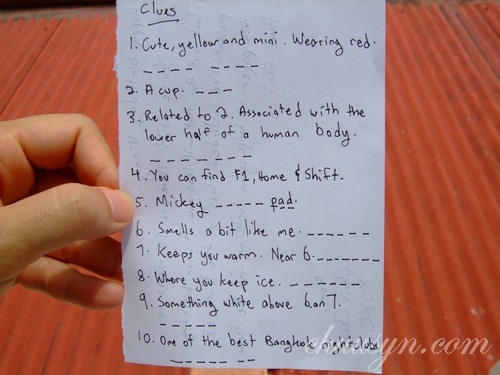 Clues
1. Cute, yellow and mini. Wearing red.
_ _ _ _ _ _ _ _
2. A cup. _ _ _
3. Related to 2. Associated with the
lower half of a human body.
_ _ _ _ _ _ _
4. You can find F1, Home & Shift.
5. Mickey _ _ _ _ _ pad.
6. Smells a bit like me. _ _ _ _ _ _
7. Keeps you warm. Near 6. _ _ _ _ _ _
8. Where you keep ice. _ _ _ _ _ _
9. Something white above 6. an 7.
_ _ _ _ _
10. One of the best Bangkok nightclubs
_ _ _ _ _ _ _
chuasyn.com